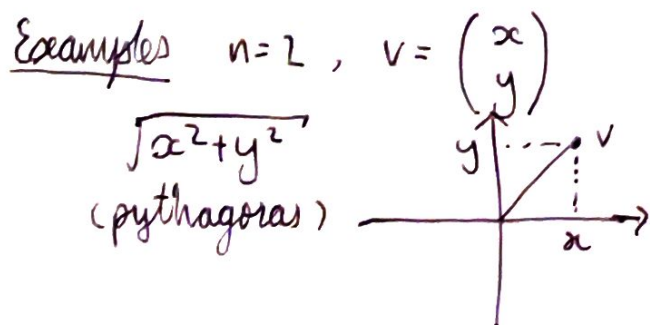 Examples n=2, v= (x
y)
√x²+y²
(pythagoras)
y
v
x